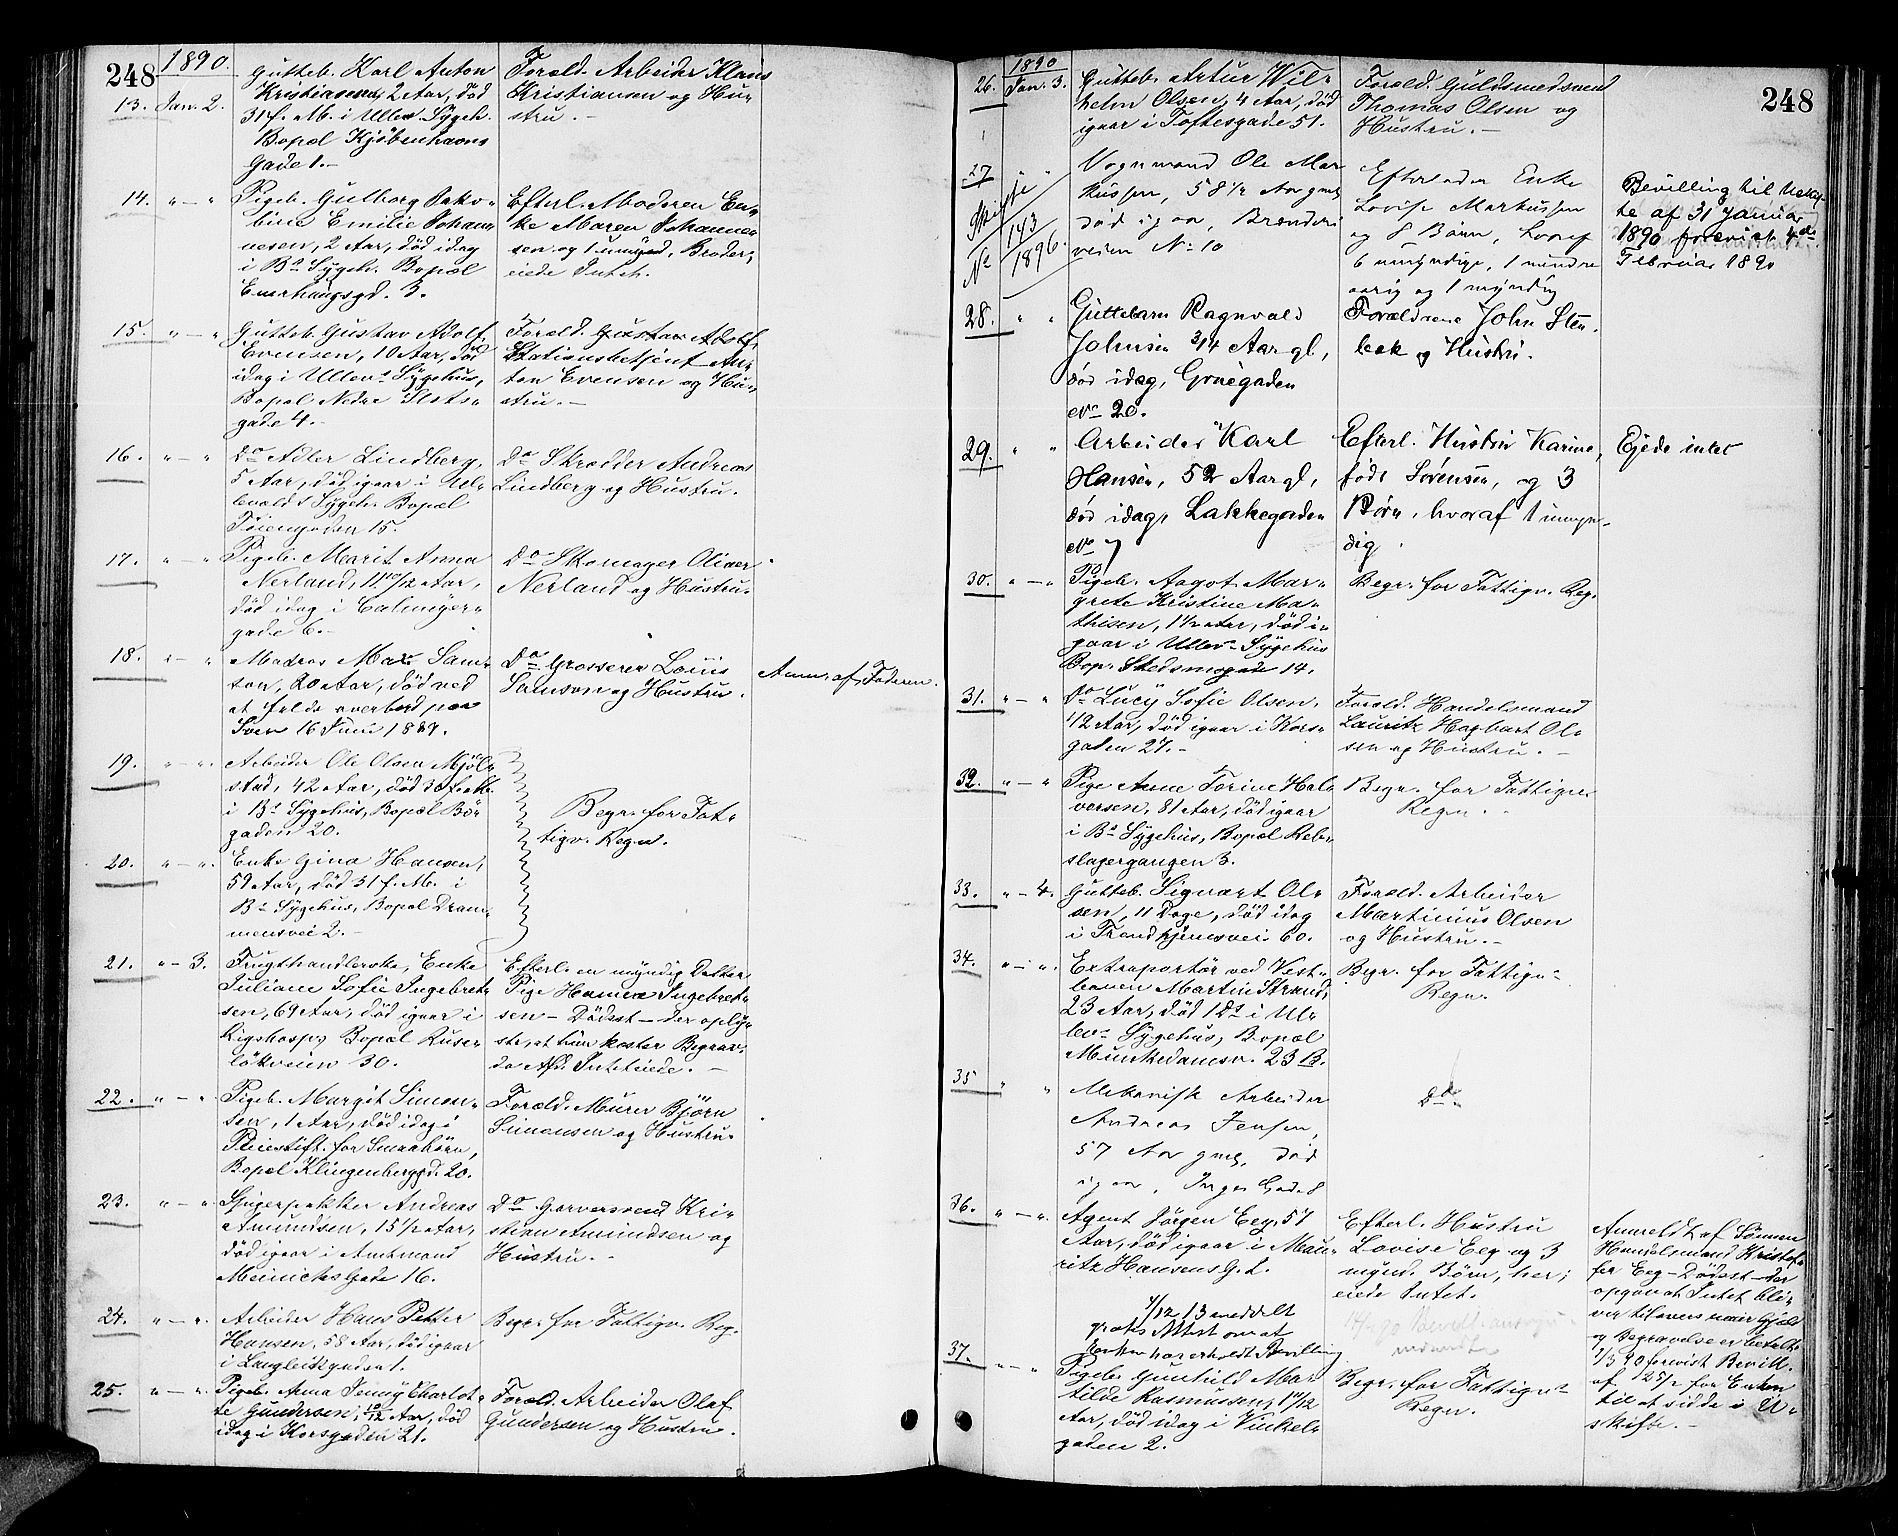 248
1890.
13. Jan. 2.
Gutteb. Karl Anton
Kristiansen, 2 Aar, död
31 f. M. i Ullev. Sygeh.
Bopæl Kjøbenhavns
Gade 1.-
Foræld. Arbeider Klaus
Kristiansen og Hu-
stru.-
14. " - "
Pigeb. Gulborg Jako-
bine Emilie Johan-
nesen, 2 Aar, död idag
i Bs Sygeh. Bopæl
Enerhaugsgd. 3.
Efterl. Moderen En-
ke Maren Johanne-
sen og 1 umynd. Broder,
eiede Intet.
15. " - "
Gutteb. Gustav Adolf
Evensen, 10 Aar, död
idag i Ullevs Sygehus,
Bopæl Nedre Slots-
gade 4.-
Foræld. Gustav Adolf
Stationsbetjent An-
ton Evensen og Hu-
stru.-
16. " - "
Do Adler Lindberg,
5 Aar, död igaar i Ul-
levold Sygeh. Bopæl
Töiengaden 15.
Do Skrædder Andreas
Lindberg og Hustru.
17. " - "
Pigeb. Marit Anna
Nerland, 11 10/12 Aar,
död idag i Calmeyer-
gade 6.-
Do Skomager Oliver
Nerland og Hustru.
18. " - "
Matros Max Sam-
son, 20 Aar, död ved
at falde overbord paa
Söen 16 Juni 1889.
Do Grosserer Louis
Samson og Hustru.
Anm. af Faderen.
19. " - "
Arbeider Ole Olsen Mjöl-
stad, 42 Aar, död 30 f. M.
i Bs Sygehus, Bopæl Bör-
gaden 20.
Begr. for Fat-
tigv. Regn.
20. " - "
Enke Gina Hansen,
59 Aar, död 31 f. M. i
Bs Sygehus, Bopæl Dram-
mensvei 2.-
21. " - 3.
Frugthandlerske, Enke
Juliane Sofie Ingebret-
sen, 69 Aar, död igaar i
Rigshosp. Bopæl Ruser-
lökveien 30.
Efterl. en myndig Datter
Pige Hanna Ingebret-
sen - Dödsat - der oply-
ste, at hun koster Begrav.
da Afd. Intet eiede.-
22. " - "
Pigeb. Margit Simon-
sen, 1 Aar, död idag i
Pleiestift. for Smaabörn,
Bopæl Klingenberggd. 20.
Foræld. Murer Björn
Simonsen og Hustru.
23. " - "
Spigerpakker Andreas
Amundsen, 15 1/2 Aar,
död igaar i Amtmand
Meinichs Gade 16.
Do Garversvend Kri-
stian Amundsen og
Hustru.-
24. " - "
Arbeider Hans Petter
Hansen, 58 Aar, död igaar
i Langleiksgaden 1.
Begr. for Fattigv. Reg.
25. " - "
Pigeb. Anna Jenny Charlot-
te Gundersen, 10/12 Aar, död
idag i Korsgaden 21.
Foræld. Arbeider Olaf
Gundersen og Hustru.
248
1890
26. Jan. 3.
Gutteb. Artur Wil-
helm Olsen, 4 Aar, död
igaar i Toftesgade 51.
Foræld. Guldsmedsvend
Thomas Olsen og
Hustru.-
27 " "
Skifte
No 143/1896.
Vognmand Ole Mar-
kussen, 58 1/2 Aar gml,
død igaar, Brænderi
veien No 10
Efterlader Enke
Lovise Markussen
og 8 Børn, hvoraf
6 umyndige, 1 mindre
aarig og 1 myndig
Bevilling til Uskif-
te af 31 Januar
1890 forevist 4de
Februar 1890
28. " "
Guttebarn Ragnvald
Johnsen 3/4 Aar gl,
død idag, Grüegaden
No 20.
Forældrene John Sten-
bæk og Hustru.
29. " "
Arbeider Karl
Hansen, 52 Aar gl,
død idag, Lakkegaden
No 7
Efterl. Hustru Karine,
født Sørensen, og 3
Børn, hvoraf 1 umyn-
dig.
Ejede intet
30. " - "
Pigeb. Aagot Mar-
grete Kristine Ma-
thisen, 1 1/2 Aar, död i-
gaar i Ullevs Sygehus
Bop. Stedsmogade 14.
Begr. for Fattigv. Reg.
31. " - "
Do Lucy Sofie Olsen,
1/2 Aar, död igaar i Kors-
gaden 27.-
Foræld. Handelsmand
Lauritz Hagbart Ol-
sen og Hustru.-
32. " - "
Pige Anne Torine Hal-
vorsen, 81 Aar, död igaar
i Bs Sygehus, Bopæl Reb-
slagergangen 3.
Begr. for Fattigv.
Regn.-
33. " - 4.
Gutteb. Sigvart Ol-
sen, 11 Dage, död idag
i Trondhjemsvei. 60.
Foræld. Arbeider
Martinius Olsen
og Hustru.-
34. " - ".
Extraportör ved Vest-
banen Martin Strand,
23 Aar, död 1 Ds i Ul-
levs Sygehus, Bopæl
Munkedamsv. 23 B.
Begr. for Fattigv.
Regn.
35 " "
Mekanisk Arbeider
Andreas Jensen,
57 Aar gml, død
igaar, Inges Gade 8
Do
36. " - ".
Agent Jörgen Eeg, 57
Aar, död igaar i Mau-
ritz Hansens G. 1.
4/12 13 meddelt
gratis Attest om at
Enken har erholdt Bevilling
Efterl. Hustru
Lovise Eeg og 3
mynd. Börn, her;
eiede Intet.
Anmeldt af Sönnen
Handelsmand Kristof-
fer Eeg - Dödsat - der
opgav at Intet bli-
ver tilovers naar Gjæld
og Begravelse er betalt.
1/3 90 forevist Bevill.
af 25/2 for Enken
til at sidde i U-
skifte.-
37. " - "
Pigeb. Gunhild Ma-
tilde Rasmussen, 1 11/12
Aar, död idag i Vinkel-
gaden 2.
Begr. for Fattigv.
Regn.